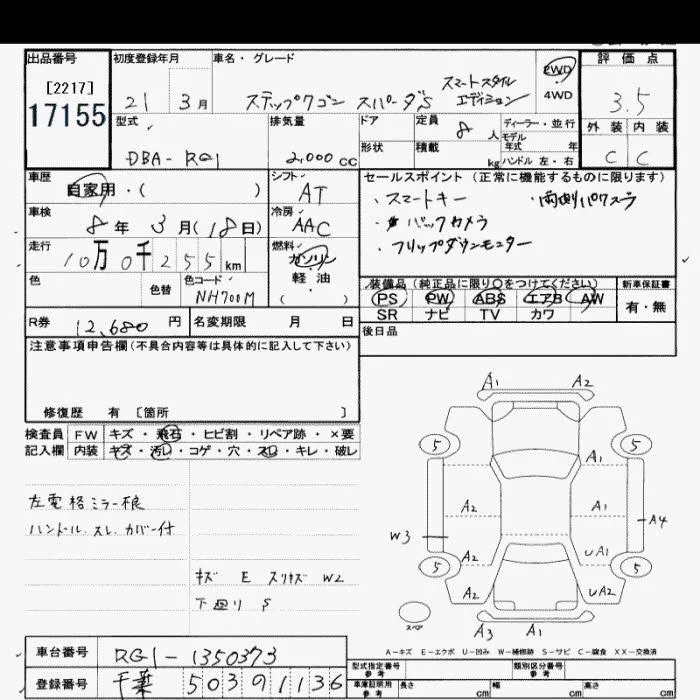 出品番号
[2217]
17155
初度登録年月
21 3月
車名・グレード
ステップワゴン スパーダS スマートスタイル
エディション
2WD
4WD
評価点
3.5
外装 内装
C C
型式
DBA-RG1
排気量
2,000 cc
ドア
形状
定員 8 人
積載 kg
ディーラー・並行
モデル
年式 年
ハンドル 左・右
車歴
自家用・( )
シフト
AT
車検
8年 3月(18日)
冷房
AAC
走行
10万0千255km
燃料
ガソリン
軽油
( ・ )
色
色替
色コード
NH700M
R券 12,680 円
名変期限 月 日
セールスポイント(正常に機能するものに限ります)
・スマートキー ・両側パワスラ
・バックカメラ
・フリップダウンモニター
装備品(純正品に限り○をつけてください)
PS PW ABS エアB AW
SR ナビ TV カワ
新車保証書
有・無
後日品
注意事項申告欄(不具合内容等は具体的に記入して下さい)
修復歴 有 [箇所 ]
検査員 FW キズ・飛石・ヒビ割・リペア跡・×要
記入欄 内装 キズ・汚レ・コゲ・穴・スレ・キレ・破レ
左電格ミラー不良
ハンドル スレ カバー付
キズ E スリキズ W2
下廻り S
A1 A2
5 5
A1
A2 A1
A4
W3
A2 UA1
5 5
A2 UA2
スペア
A3 A1
A-キズ E-エクボ U-凹み W-補修跡 S-サビ C-腐食 XX-交換済
車台番号 RG1-1350373
登録番号 千葉 503 911 36
型式指定番号
参考
類別区分番号
参考
車庫証明用
参考
長さ cm 幅 cm 高さ cm